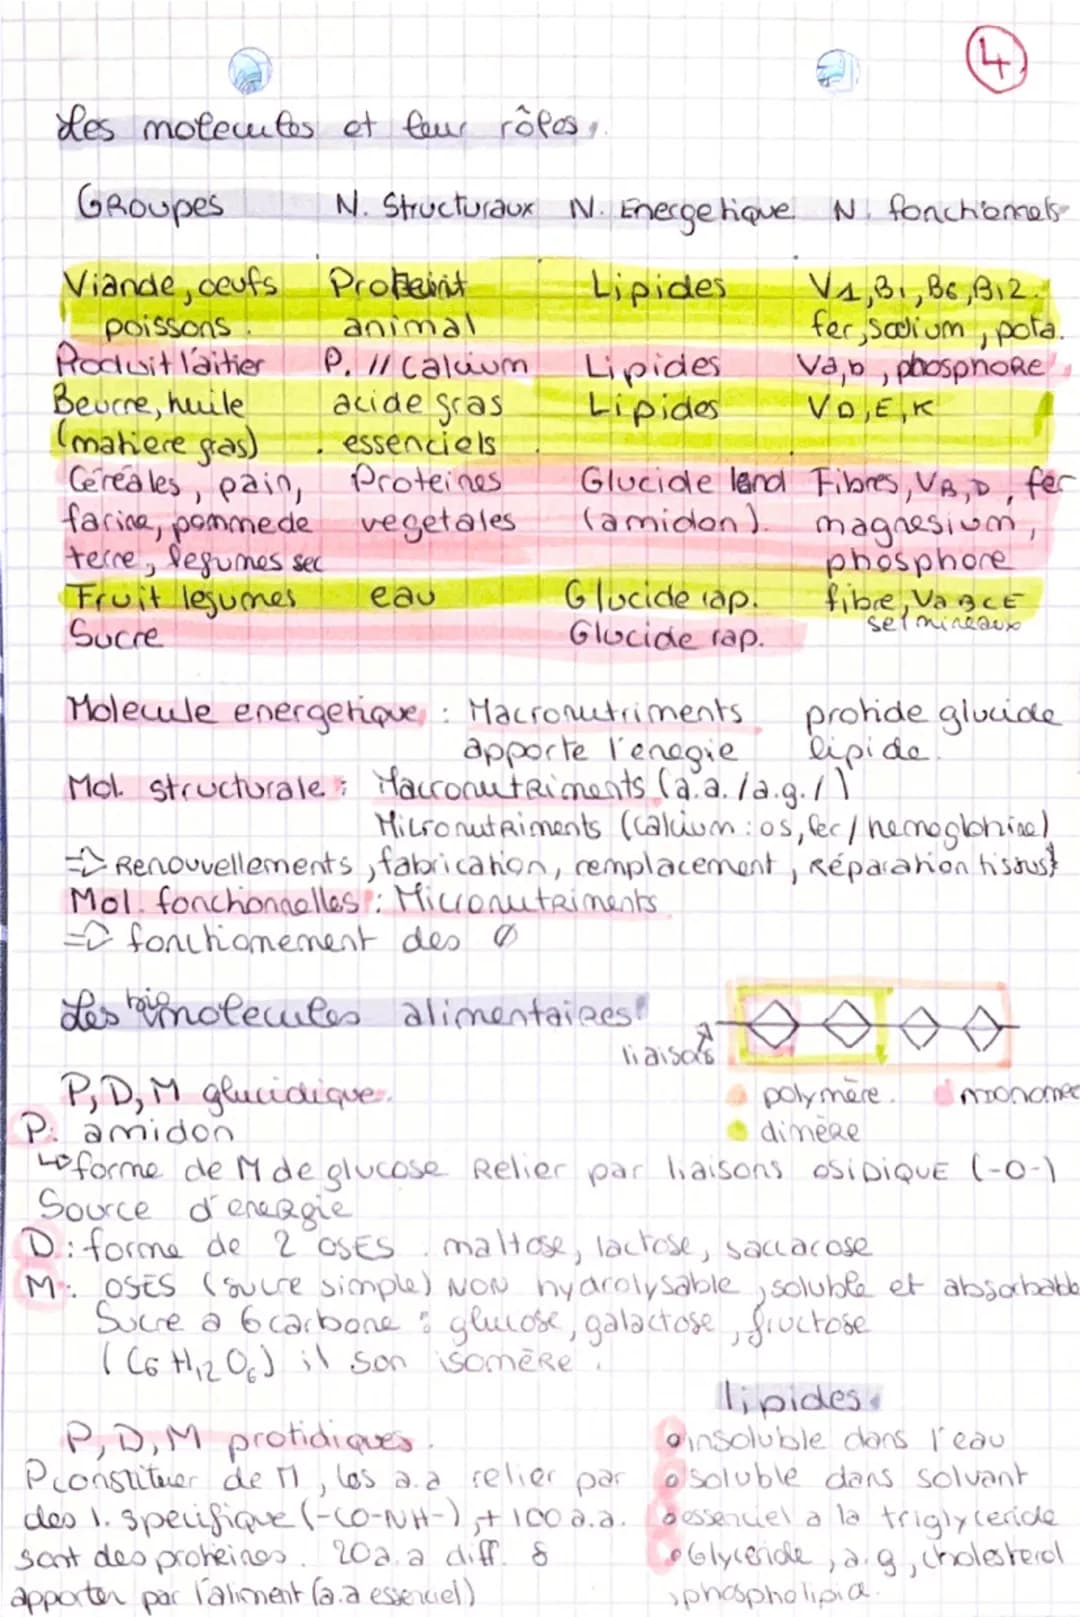 4
Les molecules et leur rôles.
GRoupes N. Structuraux N. Energetique N. fonctionnels
Viande, oeufs Proteint Lipides VA,B1,B6,B12.
poissons. animal fer, sodium, pota.
Produit laitier P. // Calcium Lipides Va,b, phosphoRe
Beurre, huile acide gras Lipides VD,E,K
(matiere gras) essenciels
Céréales, pain, Proteines Glucide lend Fibres, VB,D, fer
farine, pomme de vegetales (amidon). magnesium,
terre, legumes sec phosphore
Fruit legumes eau Glucide rap. fibre, Va B C E
Sucre Glucide rap. sel mineaux
Molecule energetique : Macronutriments protide glucide
apporte l'enegie lipide.
Mol. structurale : MacronutRiments (a.a./a.g./)
MicronutRiments (calcium : os, fer/hemoglobine)
=> Renouvellements, fabrication, remplacement, Réparation tissus
Mol. fonctionnelles : MicronutRiments
=> fonctionement des Ø
Les biomolecules alimentaiRes
liaisons
P, D, M glucidique. polymère. monomer
P. amidon dimère
↳ forme de M de glucose Relier par liaisons OSIDIQUE (-O-)
Source d'eneRgie
D : forme de 2 OSES. maltose, lactose, saccacose
M : OSES (sucre simple) NON hydrolysable, soluble et absorbable
Sucre a 6 carbone : glucose, galactose, fructose
(C6 H12 O6) il son isomèRe.
lipides.
P, D, M protidiques. insoluble dans l'eau
P constituer de M, les a.a relier par soluble dans solvant
des l. specifique (-CO-NH-), + 100 a.a. essenciel a la triglyceride
sont des proteines. 20 a.a diff. 8 Glyceride, a.g, cholesterol
apporter par l'aliment (a.a essenciel) , phospholipid.